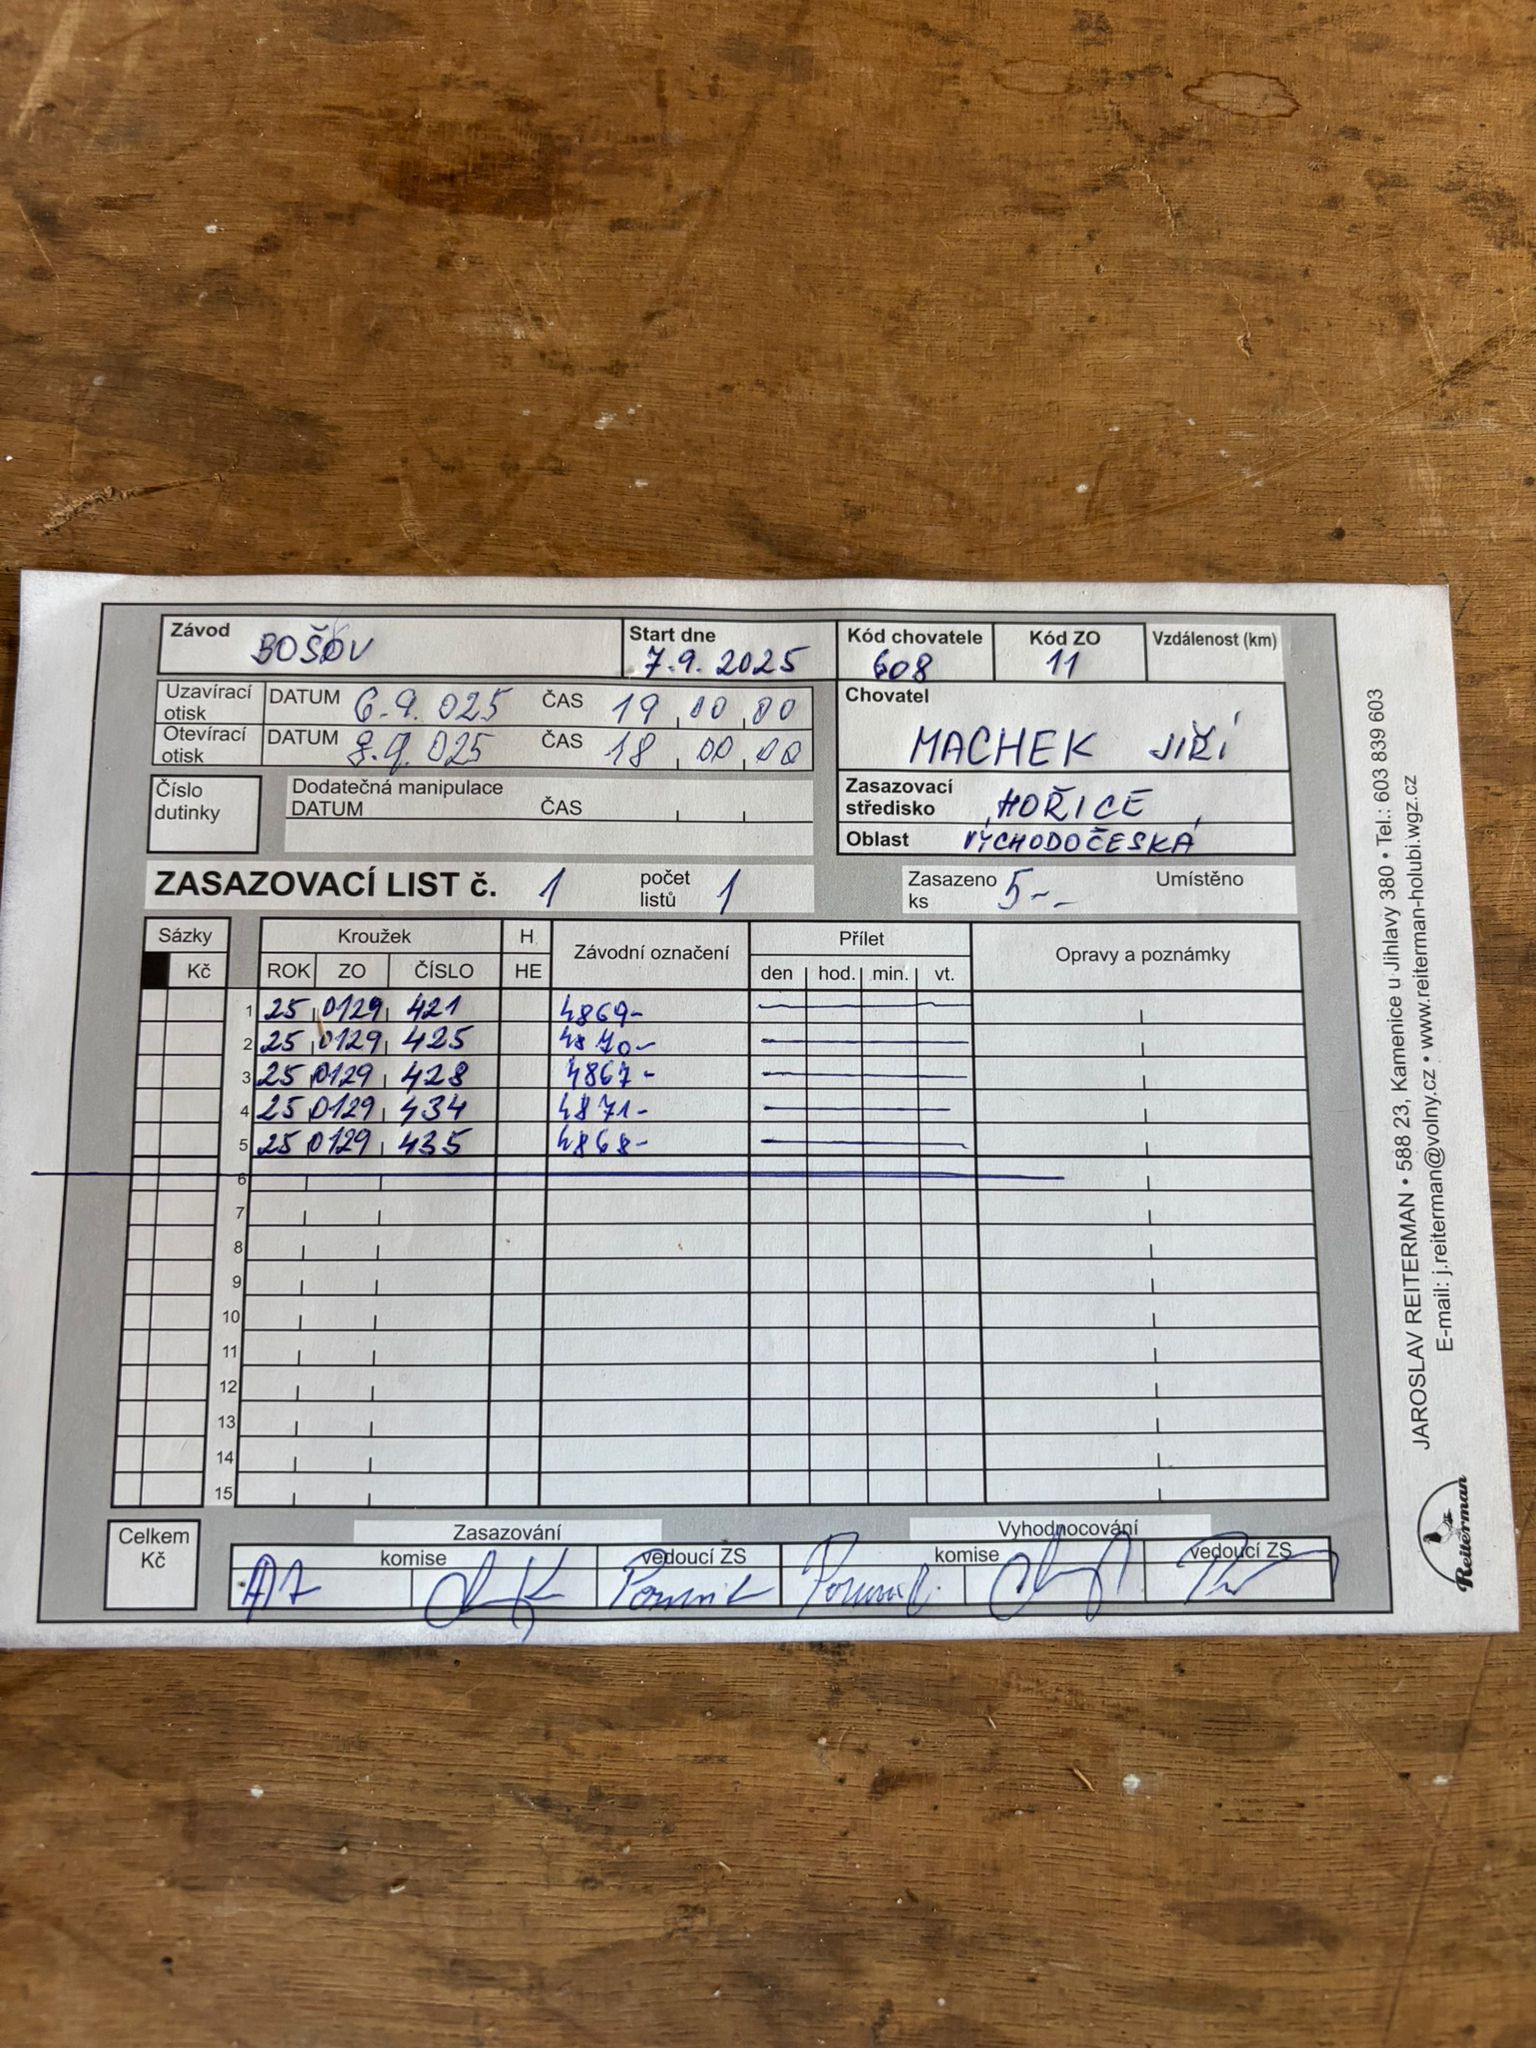 Závod BOŠOV Start dne 7.9.2025 Kód chovatele 608 Kód ZO 11 Vzdálenost (km)
Uzavírací otisk DATUM 6.9.025 ČAS 19 00 00
Otevírací otisk DATUM 8.9.025 ČAS 18 00 00
Chovatel MACHEK JIŘÍ
Číslo dutinky
Dodatečná manipulace
DATUM ČAS
Zasazovací středisko HOŘICE
Oblast VÝCHODOČESKÁ
ZASAZOVACÍ LIST č. 1 počet listů 1 Zasazeno ks 5-- Umístěno
Sázky Kroužek H Závodní označení Přílet Opravy a poznámky
Kč ROK ZO ČÍSLO HE den hod. min. vt.
1 25 0129 421 4869-
2 25 0129 425 4870-
3 25 0129 428 4867-
4 25 0129 434 4871-
5 25 0129 435 4868-
6
7
8
9
10
11
12
13
14
15
Celkem Kč
Zasazování Vyhodnocování
komise vedoucí ZS komise vedoucí ZS
JAROSLAV REITERMAN • 588 23, Kamenice u Jihlavy 380 • Tel.: 603 839 603
E-mail: j.reiterman@volny.cz • www.reiterman-holubi.wgz.cz
Reiterman